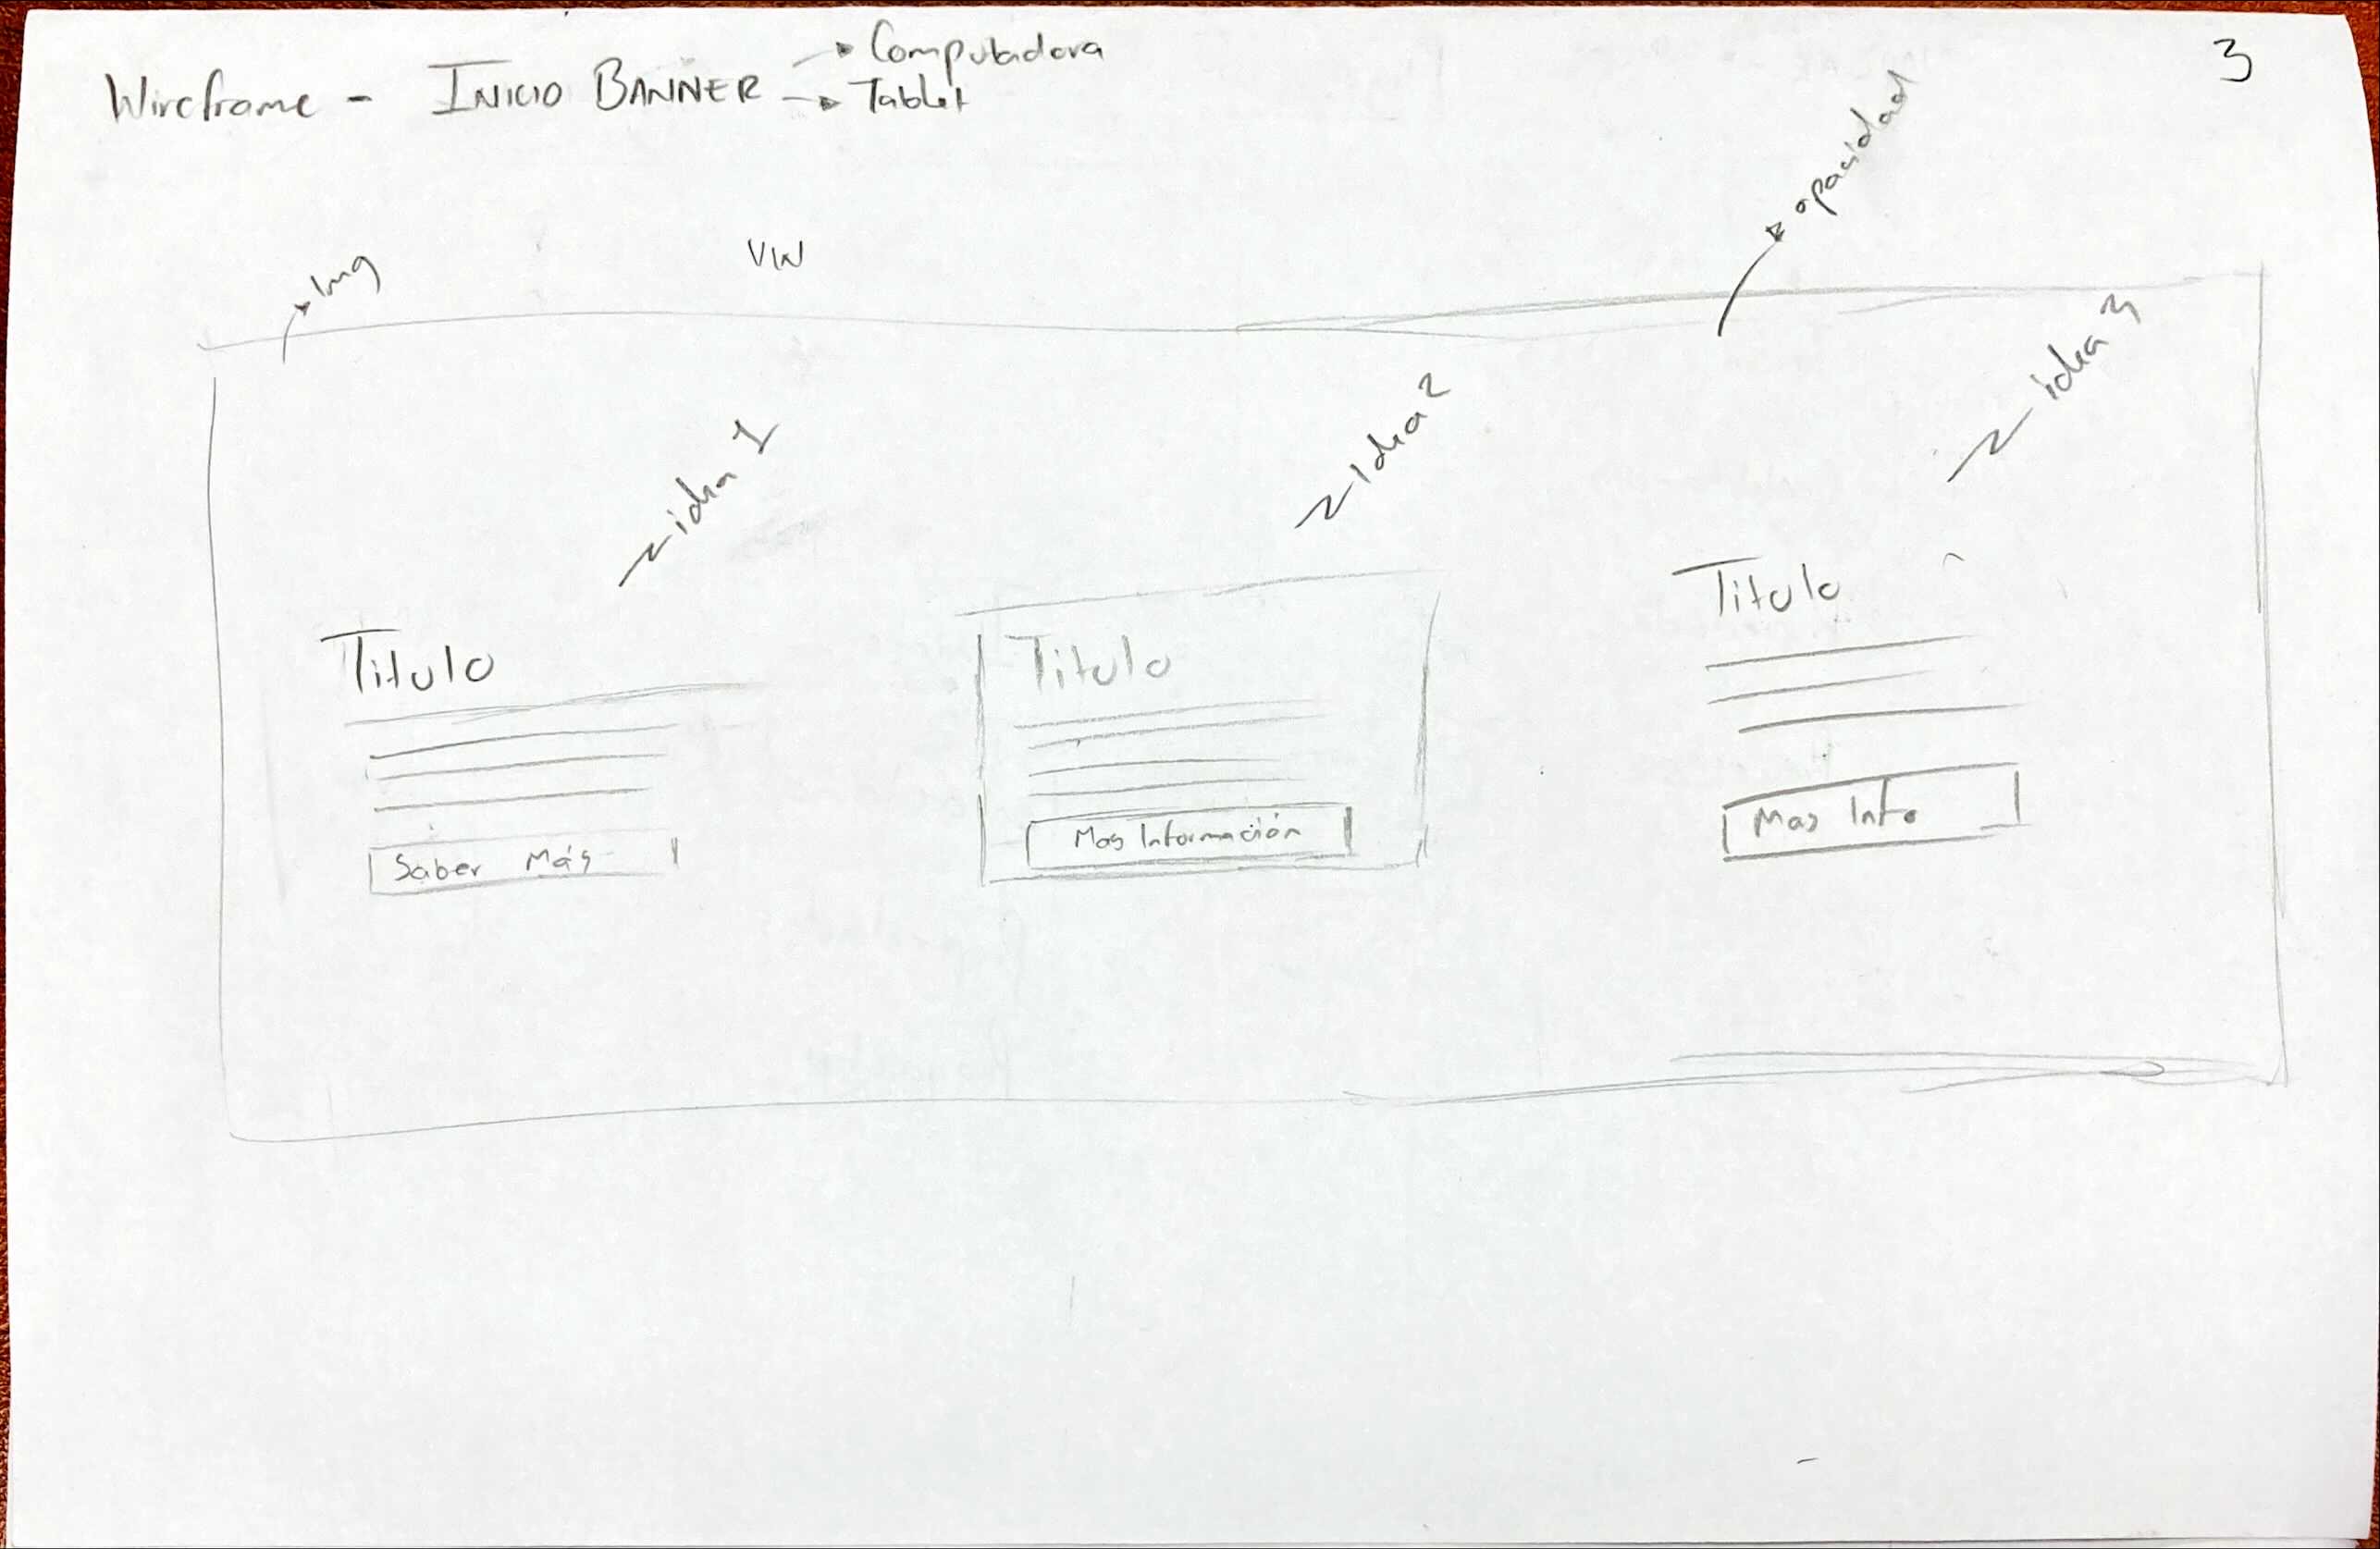 Wireframe - INICIO BANNER
Computadora
Tablet
3
opacidad
Img
VW
idea 1
Idea 2
idea 3
Titulo
Saber Más
Titulo
Mas Información
Titulo
Mas Info